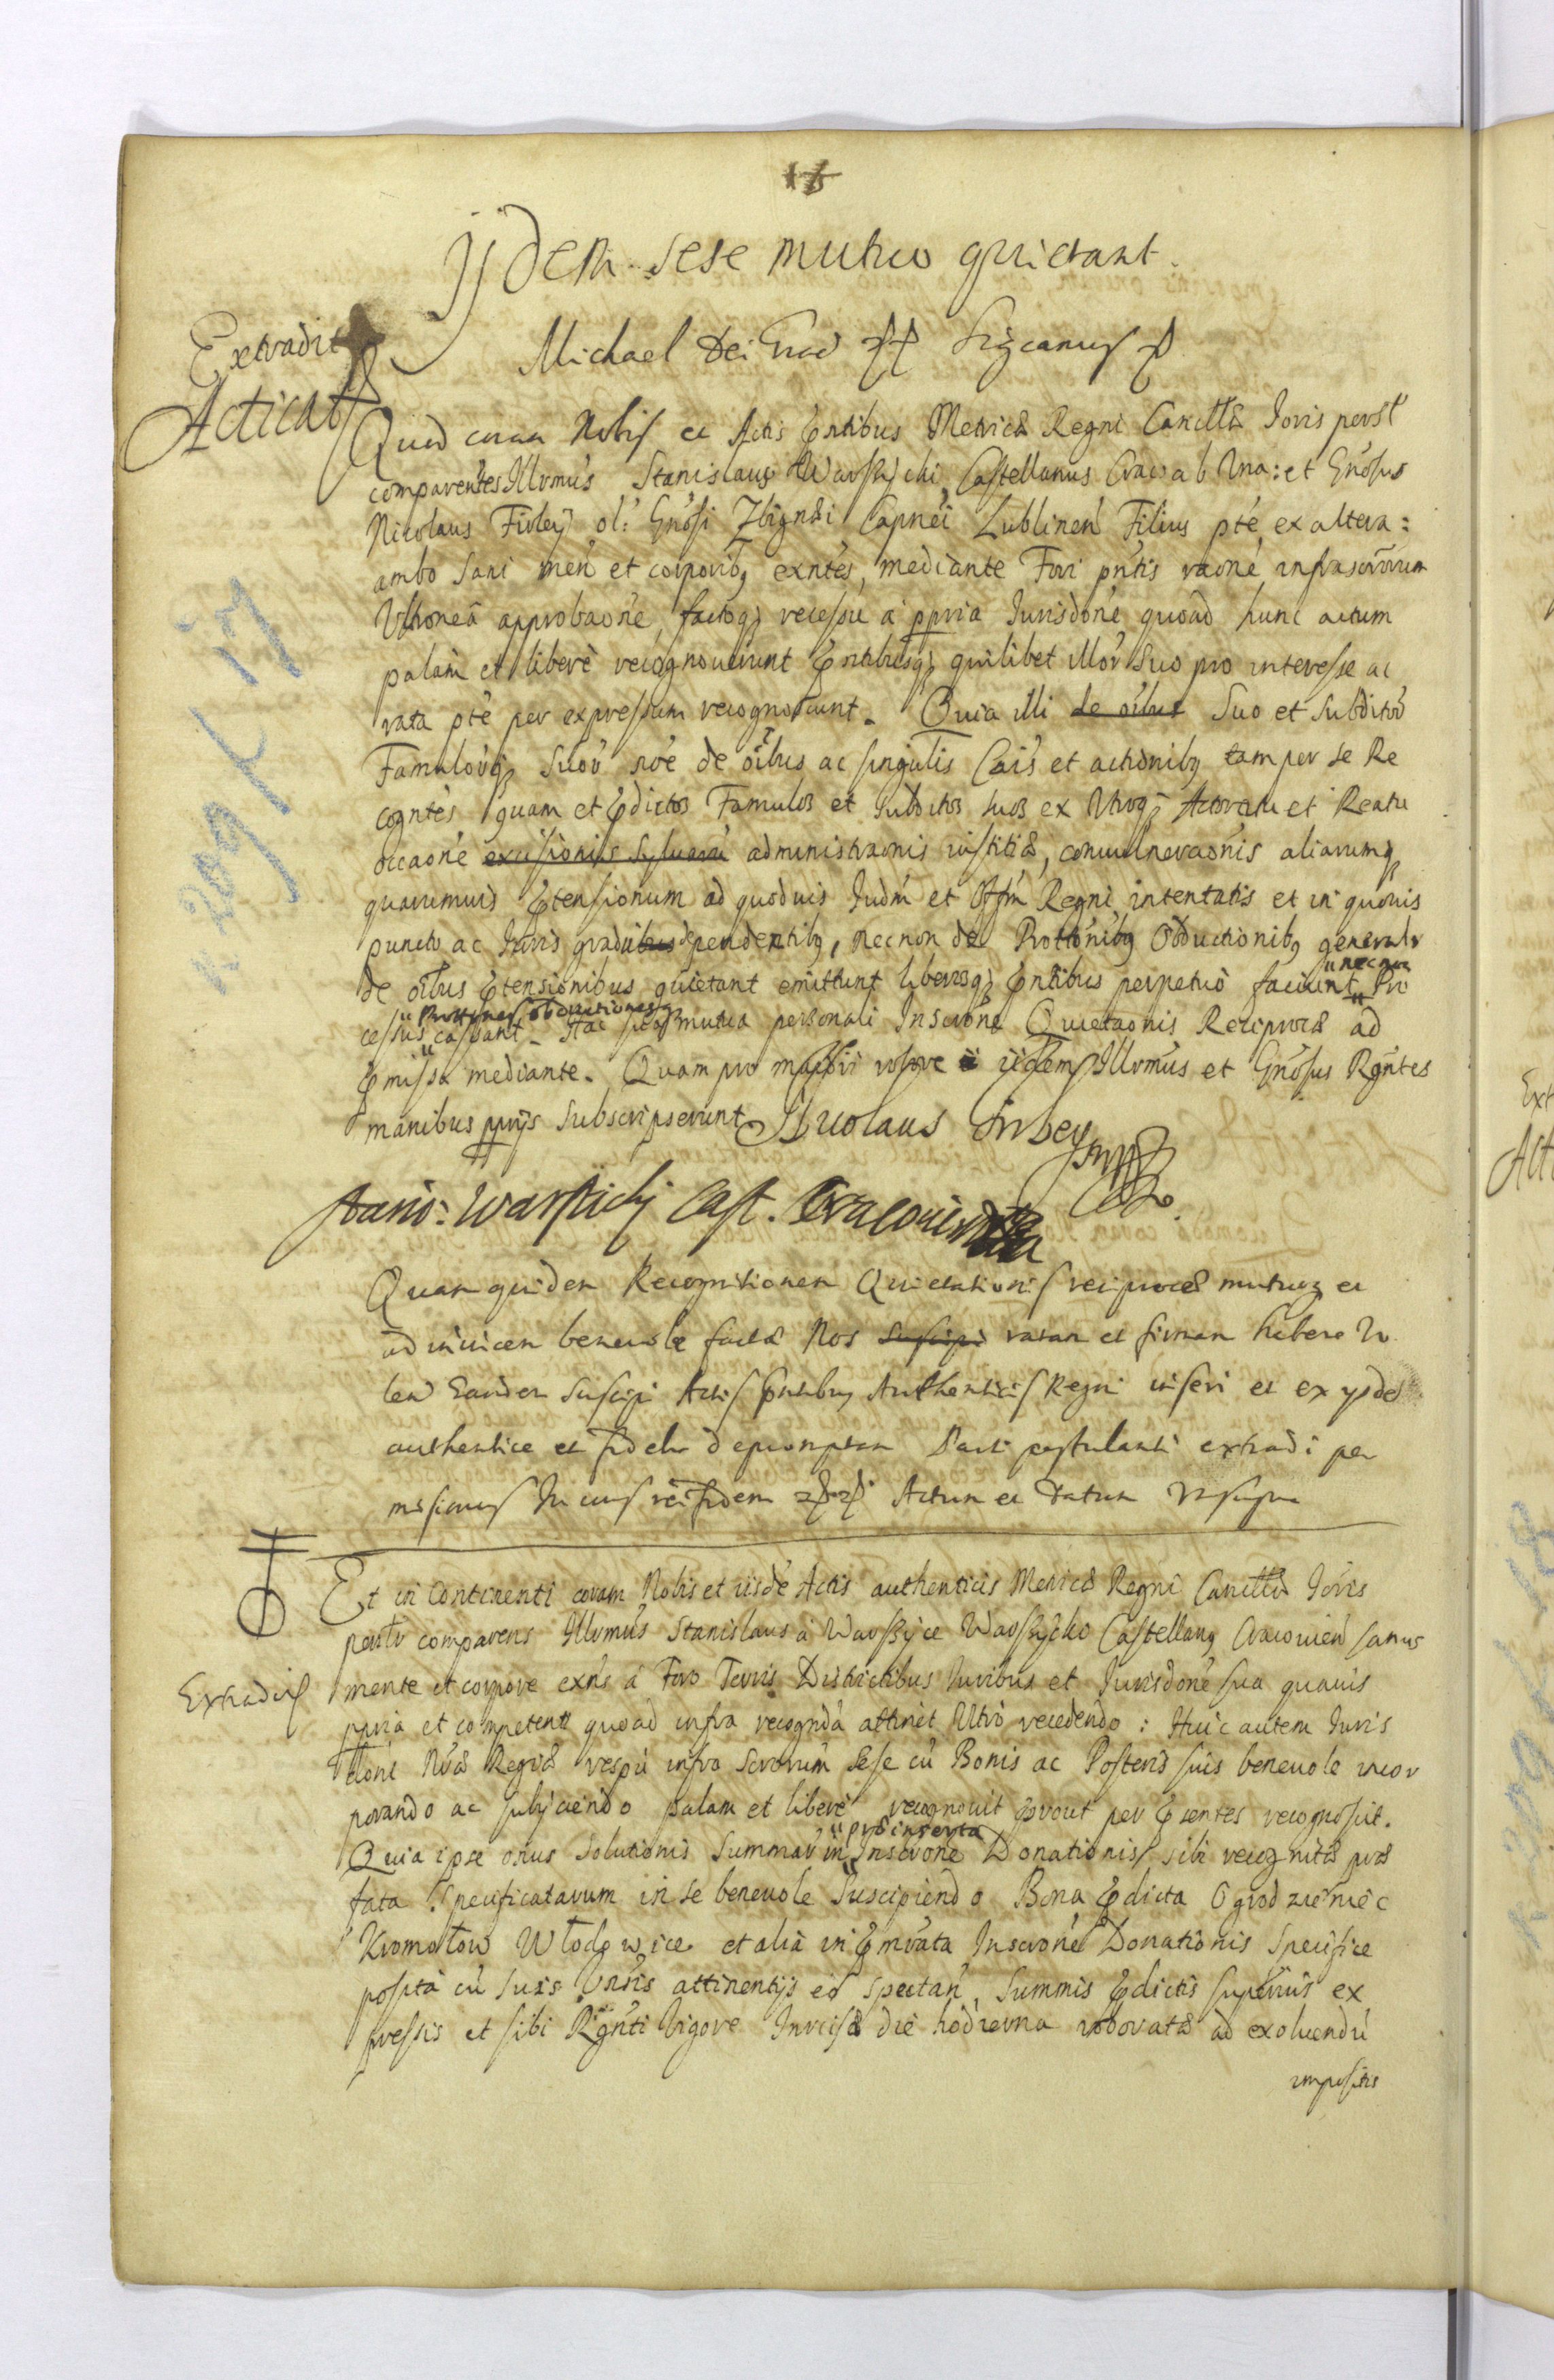 17
Jjdem sese mutuo quietant.
Extradit
Michael Dei Gra
Significamus
Acticat
Quod coram Nobis et Actis Pntibus Metricæ Regni Cancellæ Joris persl
comparentes Illrmus Stanislaus Warszycki Castellanus Crac: ab Una: et Gnosus
Nicolaus Firley ol: Gnosi Zbignei Capnei Lublinen Filius pte ex altera:
ambo sani men et corporibq exntes, mediante Fori pntis raone infrascriorum
Ultronea approbaone, factoq recessu a ppria Jurisdone quoad hunc actum
palam et libere recognouerunt Pntibusq quilibet illor suo pro interesse ac
rata pte per expressum recognoscunt. Quia illi de oibus Suo et Subditor
Famulorq suor noe de oibus ac singulis Cais et actionibq tam per se Re
cogntes quam et Pdictos Famulos et Subditos suos ex Utroq Actoratu et Reatu
occaone excisionis syluaru administraonis iustitiæ, conuulneraonis aliarumq
quarumuis Ptensionum ad quoduis Judm et Offm Regni intentatis et in quouis
puncto ac Juris gradibus dependentibq, necnon de Prottonibq Obductionibq generalr
de oibus Ptensionibus quietant emittunt liberosq Pntibus perpetuo faciunt " necnon " Pro
cessus " Prottones obductionesq " cassant. Hac sua mutua personali Inscrone Quietaonis Reciprocæ ad
Pmissa mediante. Quam pro maiori robore iidem Illrmus et Gnosus Rgntes
manibus pprijs subscripserunt Nicolaus Firley
mpp
Stanis: Warszicki Cast. Cracouien
Quam quidem Recognitionem Quietationis reciprocæ mutuoq et
ad inuicem beneuole factæ Nos suscipi ratam et firmam habere vo
len Eandem suscipi Actis Pntibus Authenticis Regni inseri et ex ysdes
authentice et fidelr depromptam Parti postulanti extradi per
misimus In cuius rei fidem Actum et Datum Ut supra
Et in continenti coram Nobis et iisde Actis authenticis Metricæ Regni Cancellæ Joris
perslr comparens Illrmus Stanislaus a Warszyce Warszycki Castellanq Cracouien sanus
Extradit
mente et corpore exns a Foro Terris Districtibus Juribus et Jurisdone sua quauis
ppria et competenti quoad infra recognda attinet Ultro recedendo: Huic autem Juris
doni Nræ Regiæ respu infra scrorum sese cu Bonis ac Posteris suis beneuole incor
porando ac subijciendo palam et libere recognouit prout per Psentes recognoscit.
Quia ipse onus solutionis Summar in " præinserta " Inscrone Donationis sibi recognitæ præ
fata Specificatarum in se beneuole Suscipiendo Bona Pdicta Ogrodzieniec
Kromołow Włodowice et alia in Pmrata Inscrone Donationis Specifice
posita cu suis Unsis attinentijs eo spectan, Summis Pdictis superius ex
pressis et sibi Rgnti Vigore Inscrisæ die hodierna roboratæ ad exoluendu
impositis